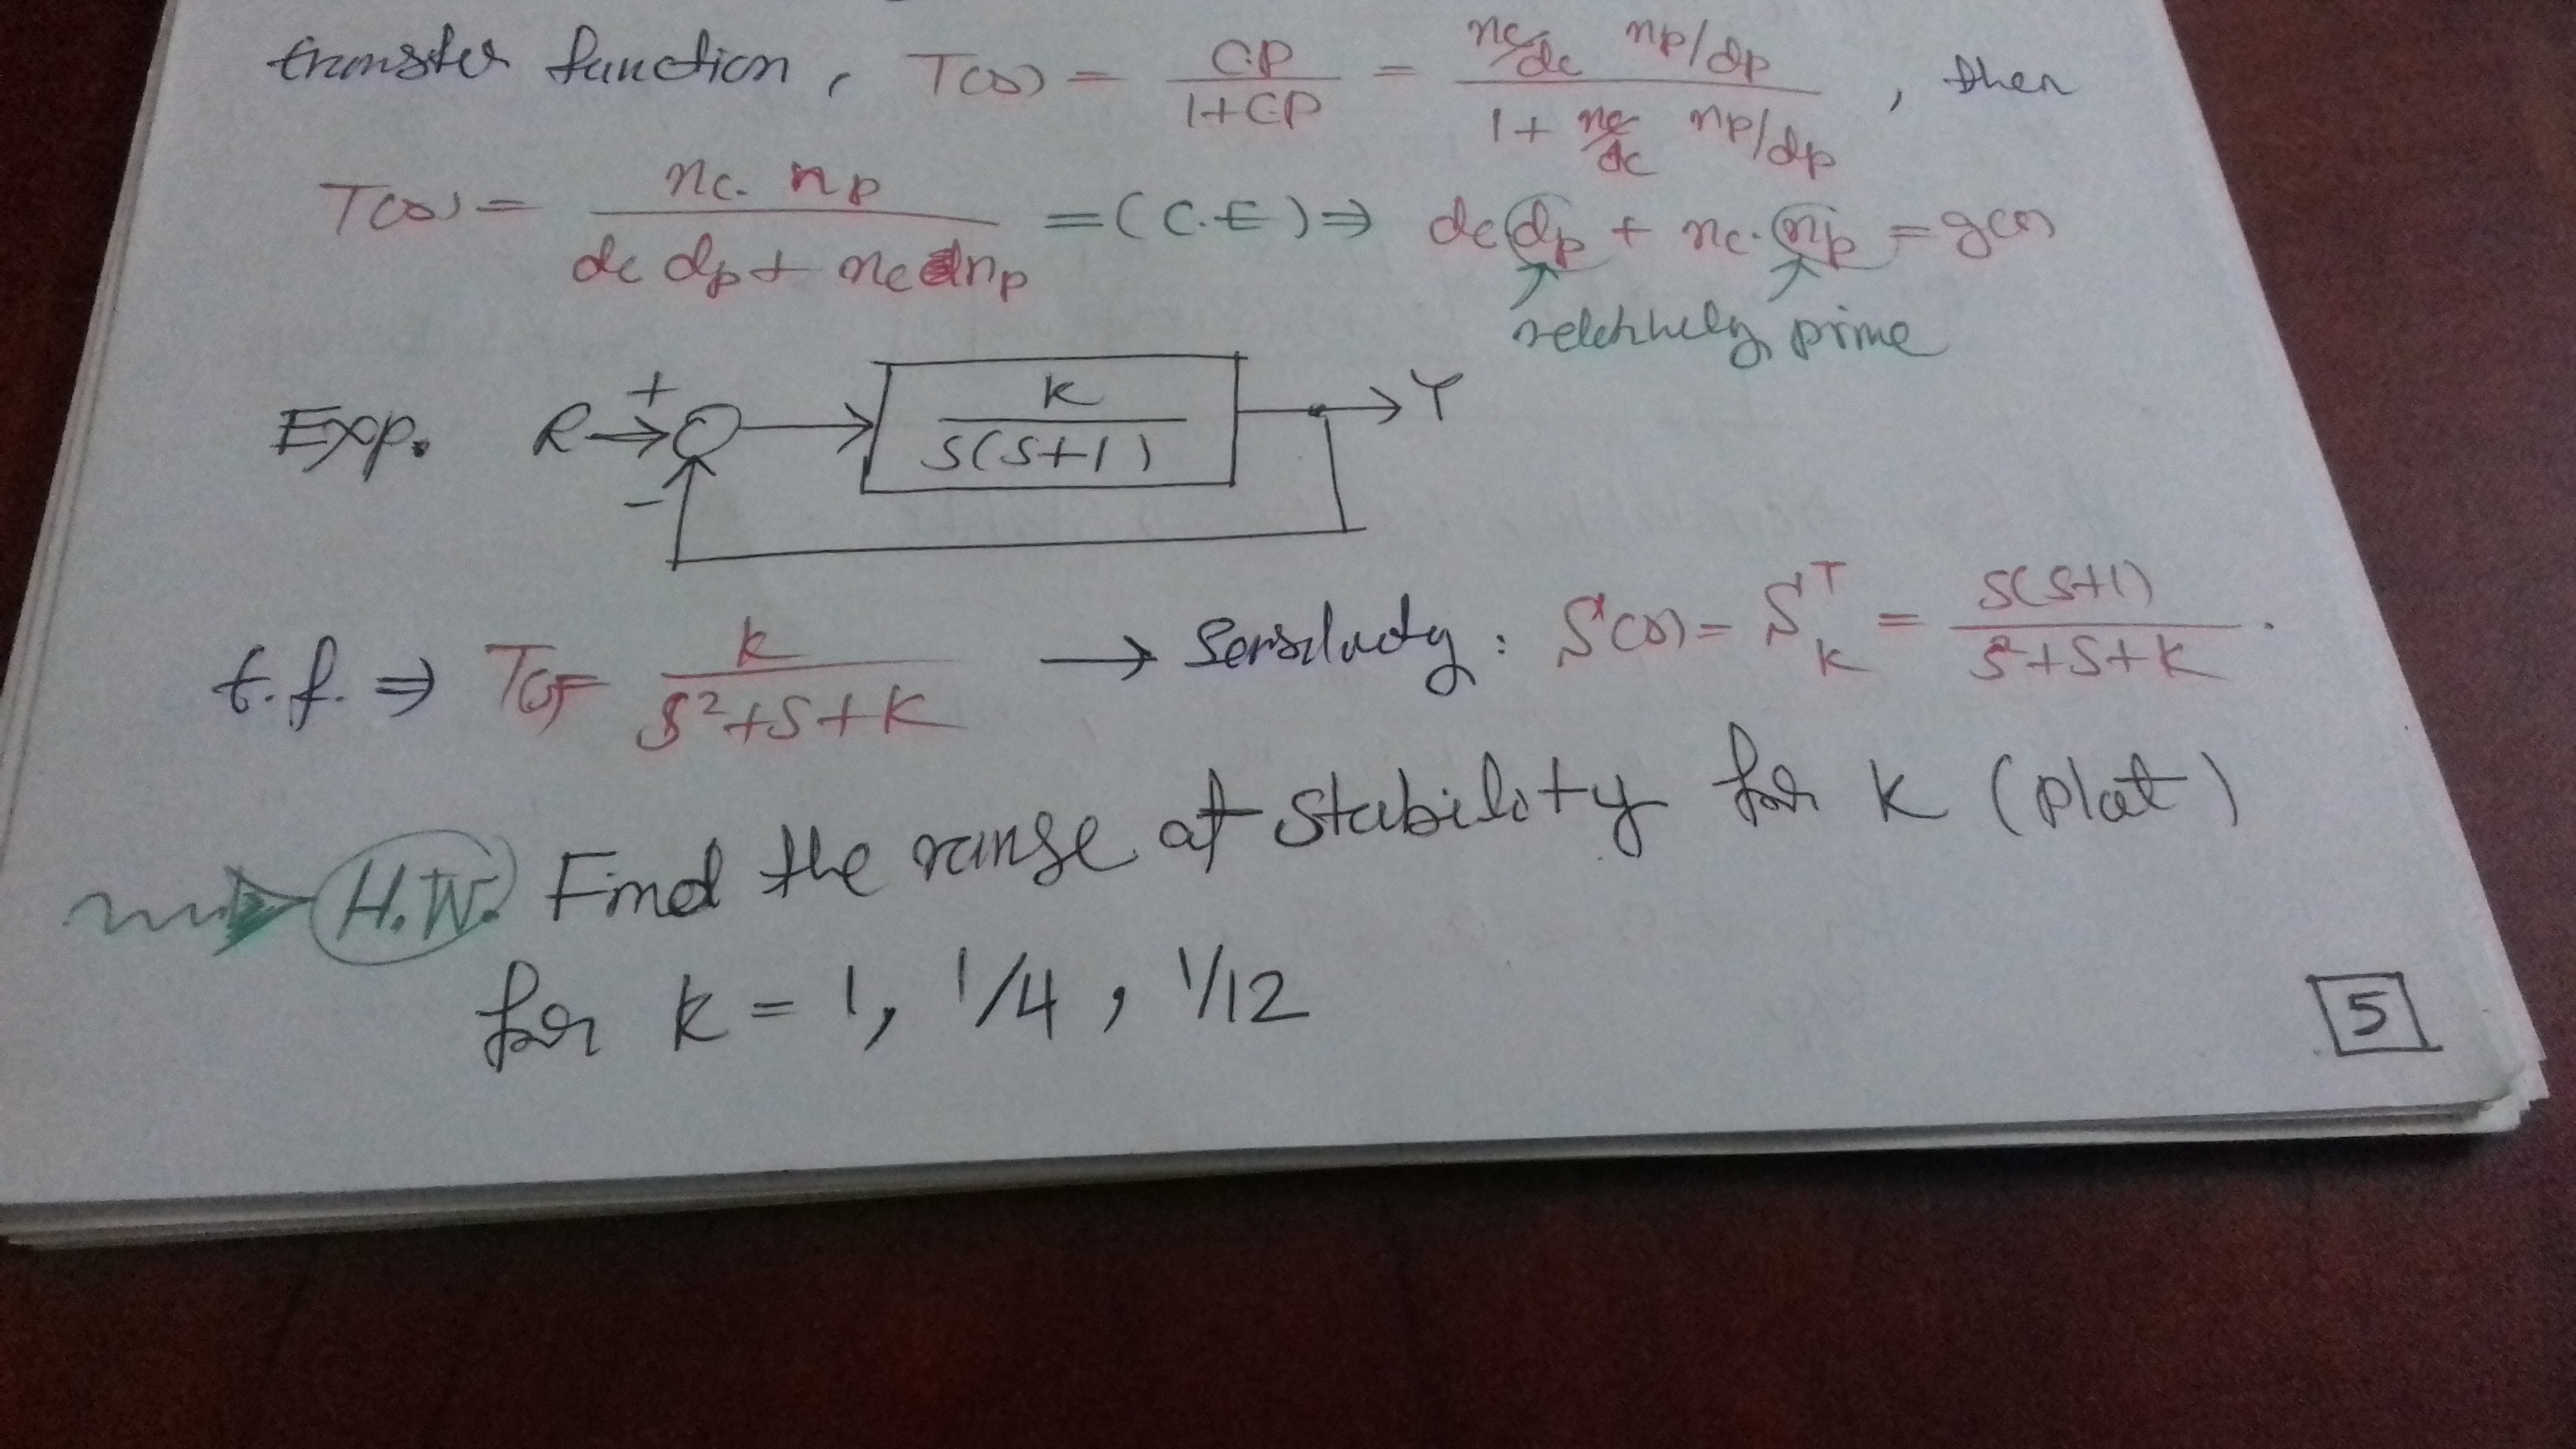 transfer function, T(s) = C.P / 1+C.P = nc/dc np/dp / 1+ nc/dc np/dp , then
T(s) = nc. np / dc dp + nc np = (C.E) ⇒ dc dp + nc. np = g(s)
relatively prime
Exp. R + - K / S(S+1) Y
t.f. ⇒ T(s)= K / S²+S+K → Sensitivity : S(s) = S T K = S(S+1) / S²+S+K .
H.W. Find the range of stability for K (plot)
for K = 1, 1/4, 1/12
5